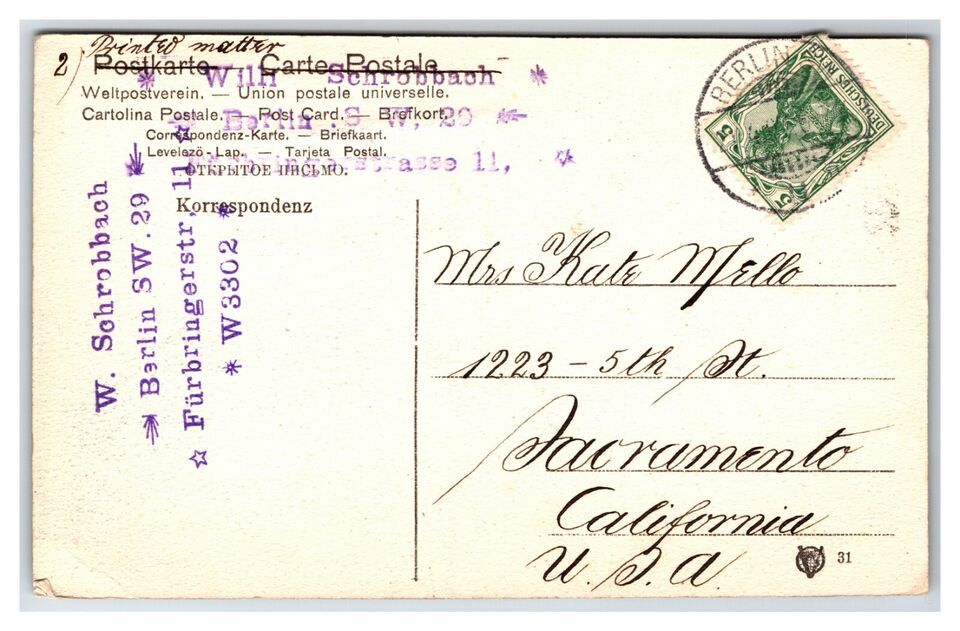 2) Printed matter
Postkarte. Carte Postale
* Willi Schrobbach *
Weltpostverein. — Union postale universelle.
Cartolina Postale. — Post Card. — Brefkort.
* Berlin S W, 29 *
Correspondenz-Karte. — Briefkaart.
Levelező-Lap. — Tarjeta Postal.
Fürbringerstrasse 11,
ОТКРЫТОЕ ПИСЬМО.
Korrespondenz
W. Schrobbach
Berlin SW. 29
Fürbringerstr, 11
* W3302 *
BERLIN
DEUTSCHES REICH
5
5
Mrs Kate Mello
1223 - 5th St.
Sacramento
California
U.S.A.
31